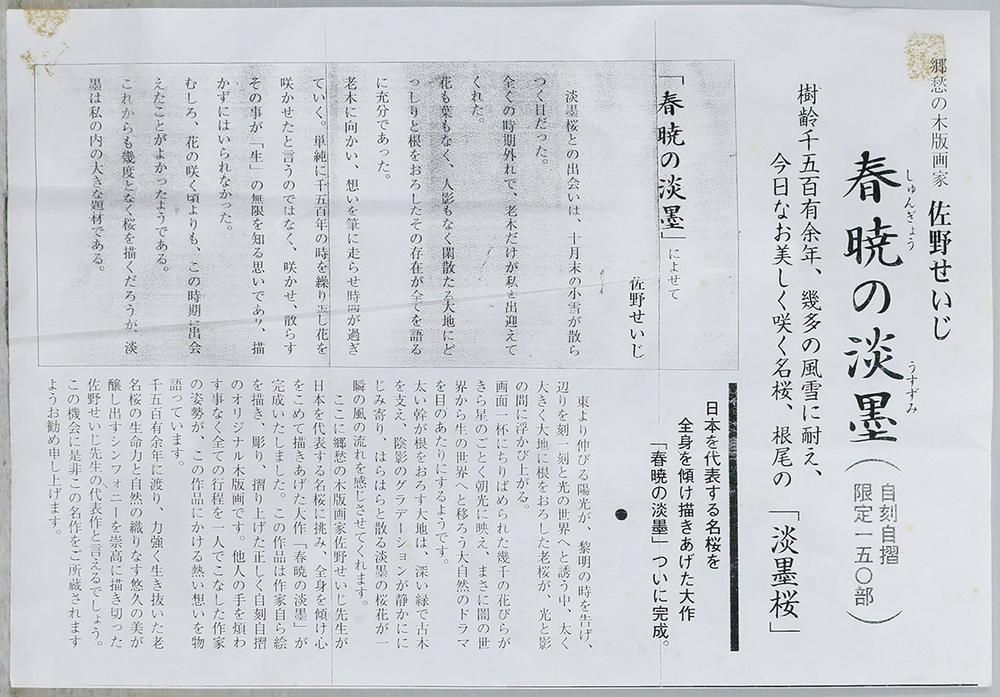 郷愁の木版画家 佐野せいじ
春暁の淡墨
しゅんぎょう うすずみ
(自刻自摺
限定一五〇部)
樹齢千五百有余年、幾多の風雪に耐え、
今日なお美しく咲く名桜、根尾の「淡墨桜」
「春暁の淡墨」によせて
佐野せいじ
淡墨桜との出会いは、十月末の小雪が散ら
つく日だった。
全くの時期外れで、老木だけが私を出迎えて
くれた。
花も葉もなく、人影もなく閑散たる大地にど
っしりと根をおろしたその存在が全てを語る
に充分であった。
老木に向かい、想いを筆に走らせ時間が過ぎ
ていく。単純に千五百年の時を繰り返し花を
咲かせたと言うのではなく、咲かせ、散らす
その事が「生」の無限を知る思いであり、描
かずにはいられなかった。
むしろ、花の咲く頃よりも、この時期に出会
えたことがよかったようである。
これからも幾度となく桜を描くだろうが、淡
墨は私の内の大きな題材である。
日本を代表する名桜を
全身を傾け描きあげた大作
「春暁の淡墨」ついに完成。
●
東より伸びる陽光が、黎明の時を告げ、
辺りを刻一刻と光の世界へと誘う中、太く
大きく大地に根をおろした老桜が、光と影
の間に浮かび上がる。
画面一杯にちりばめられた幾千の花びらが
きら星のごとく朝光に映え、まさに闇の世
界から生の世界へと移ろう大自然のドラマ
を目のあたりにするようです。
太い幹が根をおろす大地は、深い緑で古木
を支え、陰影のグラデーションが静かにに
じみ寄り、はらはらと散る淡墨の桜花が一
瞬の風の流れを感じさせてくれます。
ここに郷愁の木版画家佐野せいじ先生が
日本を代表する名桜に挑み、全身を傾け心
をこめて描きあげた大作「春暁の淡墨」が
完成いたしました。この作品は作家自ら絵
を描き、彫り、摺り上げた正しく自刻自摺
のオリジナル木版画です。他人の手を煩わ
す事なく全ての行程を一人でこなした作家
の姿勢が、この作品にかける熱い想いを物
語っています。
千五百有余年に渡り、力強く生き抜いた老
名桜の生命力と自然の織りなす悠久の美が
醸し出すシンフォニーを崇高に描き切った
佐野せいじ先生の代表作と言えるでしょう。
この機会に是非この名作をご所蔵されます
ようお勧め申し上げます。